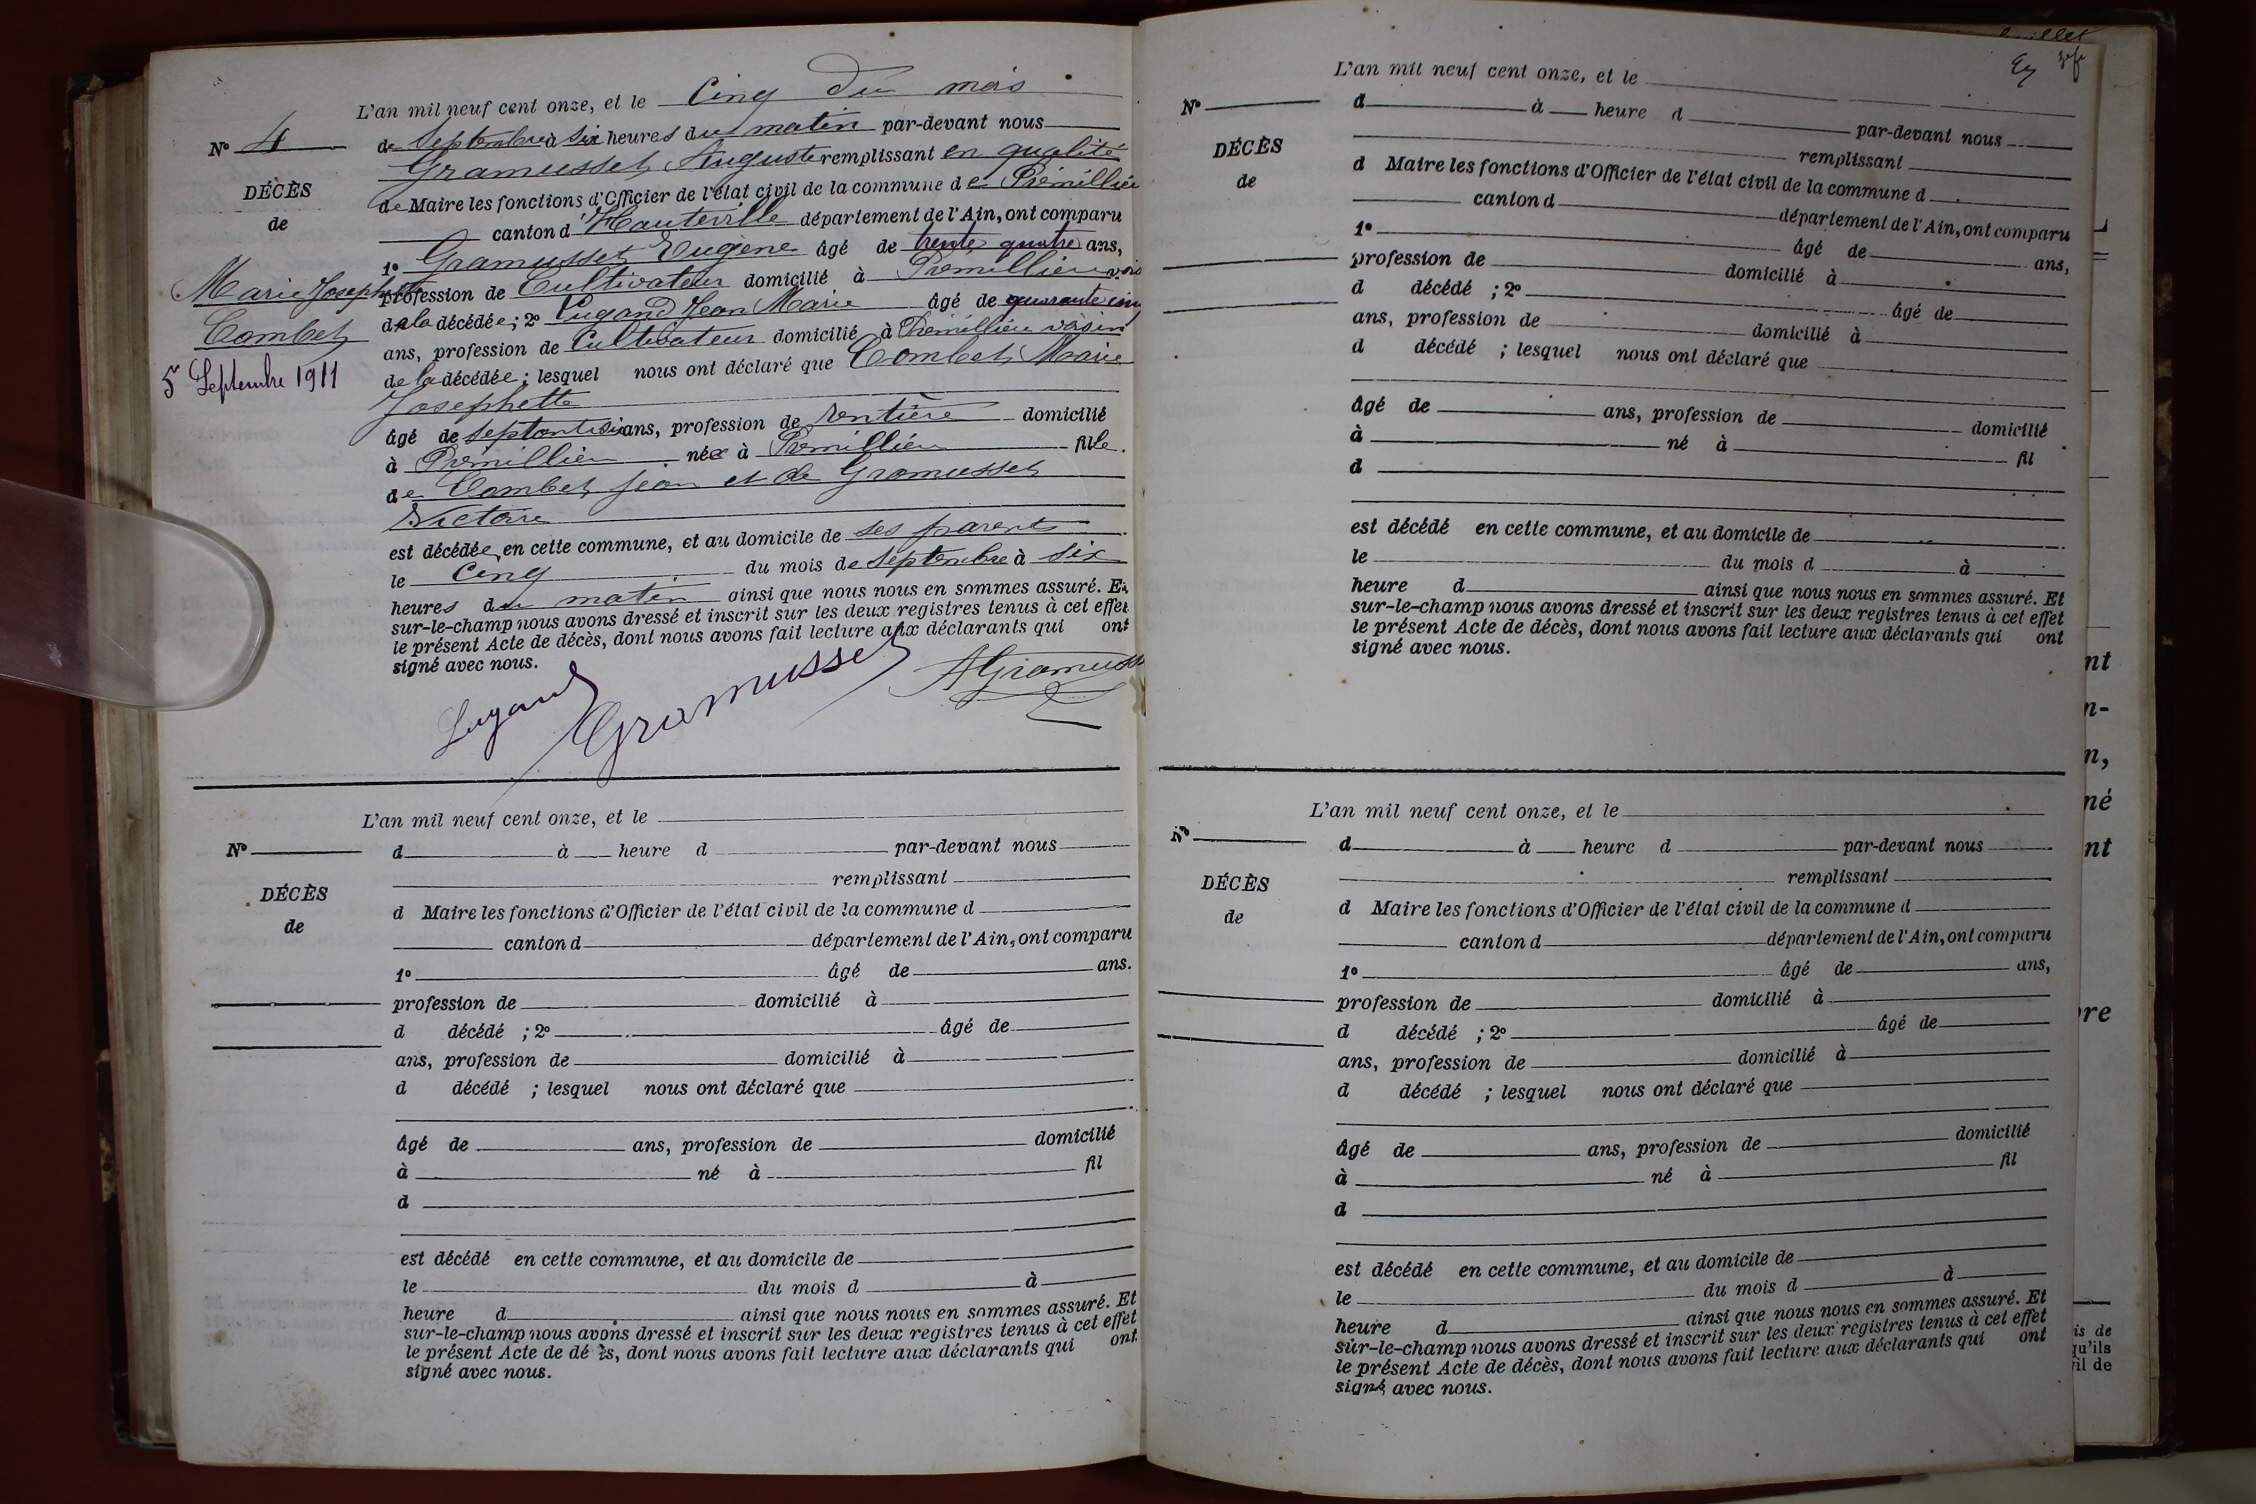 L'an mil neuf cent onze, et le Cinq du mois
de Septembre à six heures du matin par-devant nous
Gramusset Auguste remplissant en qualité
de Maire les fonctions d'Officier de l'état civil de la commune de Prémillieu
canton d'Hauteville département de l'Ain, ont comparu
1º Gramusset Eugène âgé de trente quatre ans,
profession de Cultivateur domicilié à Prémillieu
de la décédée ; 2º Lugand Jean Marie âgé de quarante cinq
ans, profession de Cultivateur domicilié à Prémillieu voisin
de la décédée ; lesquel nous ont déclaré que Combet Marie
Josephette
âgé de ans, profession de rentière domicilié
à Prémillieu née à Prémillieu fille.
de Combet Jean et de Gramusset
Victoire
est décédée en cette commune, et au domicile de ses parents
le cinq du mois de Septembre à six
heures du matin ainsi que nous nous en sommes assuré. Et
sur-le-champ nous avons dressé et inscrit sur les deux registres tenus à cet effet
le présent Acte de décès, dont nous avons fait lecture aux déclarants qui ont
signé avec nous.
Lugand Gramusset AGramusset
Nº 4
DÉCÈS
de
Marie Josephette
Combet
5 Septembre 1911
L'an mil neuf cent onze, et le
Nº
d à heure d par-devant nous
remplissant
DÉCÈS
de
d Maire les fonctions d'Officier de l'état civil de la commune d
canton d département de l'Ain, ont comparu
1º âgé de ans.
profession de domicilié à
d décédé ; 2º âgé de
ans, profession de domicilié à
d décédé ; lesquel nous ont déclaré que
âgé de ans, profession de domicilié
à né à fil
d
est décédé en cette commune, et au domicile de
le du mois d à
heure d ainsi que nous nous en sommes assuré. Et
sur-le-champ nous avons dressé et inscrit sur les deux registres tenus à cet effet
le présent Acte de dé ès, dont nous avons fait lecture aux déclarants qui ont
signé avec nous.
L'an mil neuf cent onze, et le
Nº
d à heure d par-devant nous
remplissant
DÉCÈS
de
d Maire les fonctions d'Officier de l'état civil de la commune d
canton d département de l'Ain, ont comparu
1º âgé de ans,
profession de domicilié à
d décédé ; 2º âgé de
ans, profession de domicilié à
d décédé ; lesquel nous ont déclaré que
âgé de ans, profession de domicilié
à né à fil
d
est décédé en cette commune, et au domicile de
le du mois d à
heure d ainsi que nous nous en sommes assuré. Et
sur-le-champ nous avons dressé et inscrit sur les deux registres tenus à cet effet
le présent Acte de décès, dont nous avons fait lecture aux déclarants qui ont
signé avec nous.
L'an mil neuf cent onze, et le
Nº
d à heure d par-devant nous
remplissant
DÉCÈS
de
d Maire les fonctions d'Officier de l'état civil de la commune d
canton d département de l'Ain, ont comparu
1º âgé de ans,
profession de domicilié à
d décédé ; 2º âgé de
ans, profession de domicilié à
d décédé ; lesquel nous ont déclaré que
âgé de ans, profession de domicilié
à né à fil
d
est décédé en cette commune, et au domicile de
le du mois d à
heure d ainsi que nous nous en sommes assuré. Et
sur-le-champ nous avons dressé et inscrit sur les deux registres tenus à cet effet
le présent Acte de décès, dont nous avons fait lecture aux déclarants qui ont
signé avec nous.
nt
n-
n,
né
nt
re
is de
qu'ils
il de